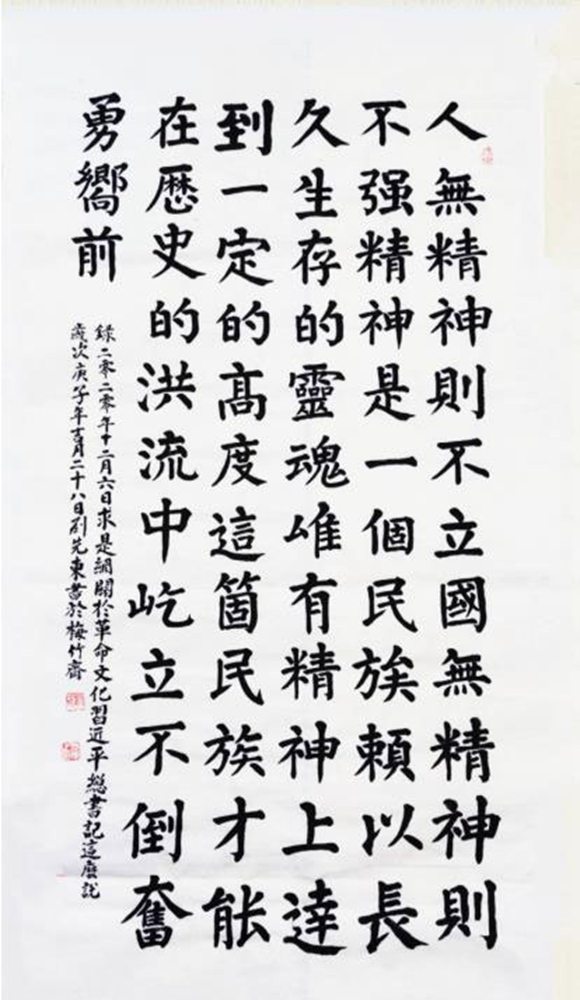 人無精神則不立國無精神則
不强精神是一個民族賴以長
久生存的靈魂唯有精神上達
到一定的髙度這箇民族才能
在歷史的洪流中屹立不倒奮
勇嚮前
錄二零二零年十二月六日求是網關於革命文化習近平總書記這麽説
歲次庚子年吉月二十八日劉先東書於梅竹齋